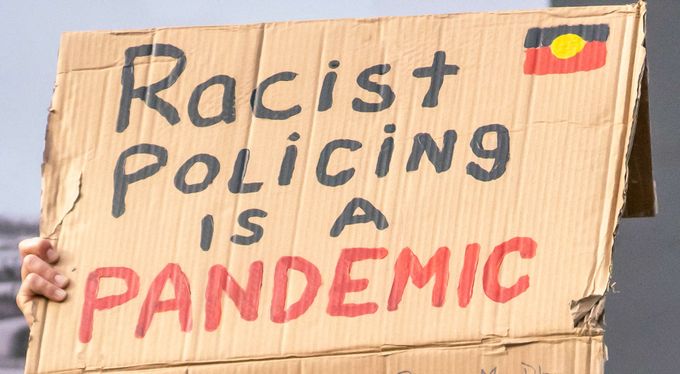 Racist
POLICING
IS A
PANDEMIC